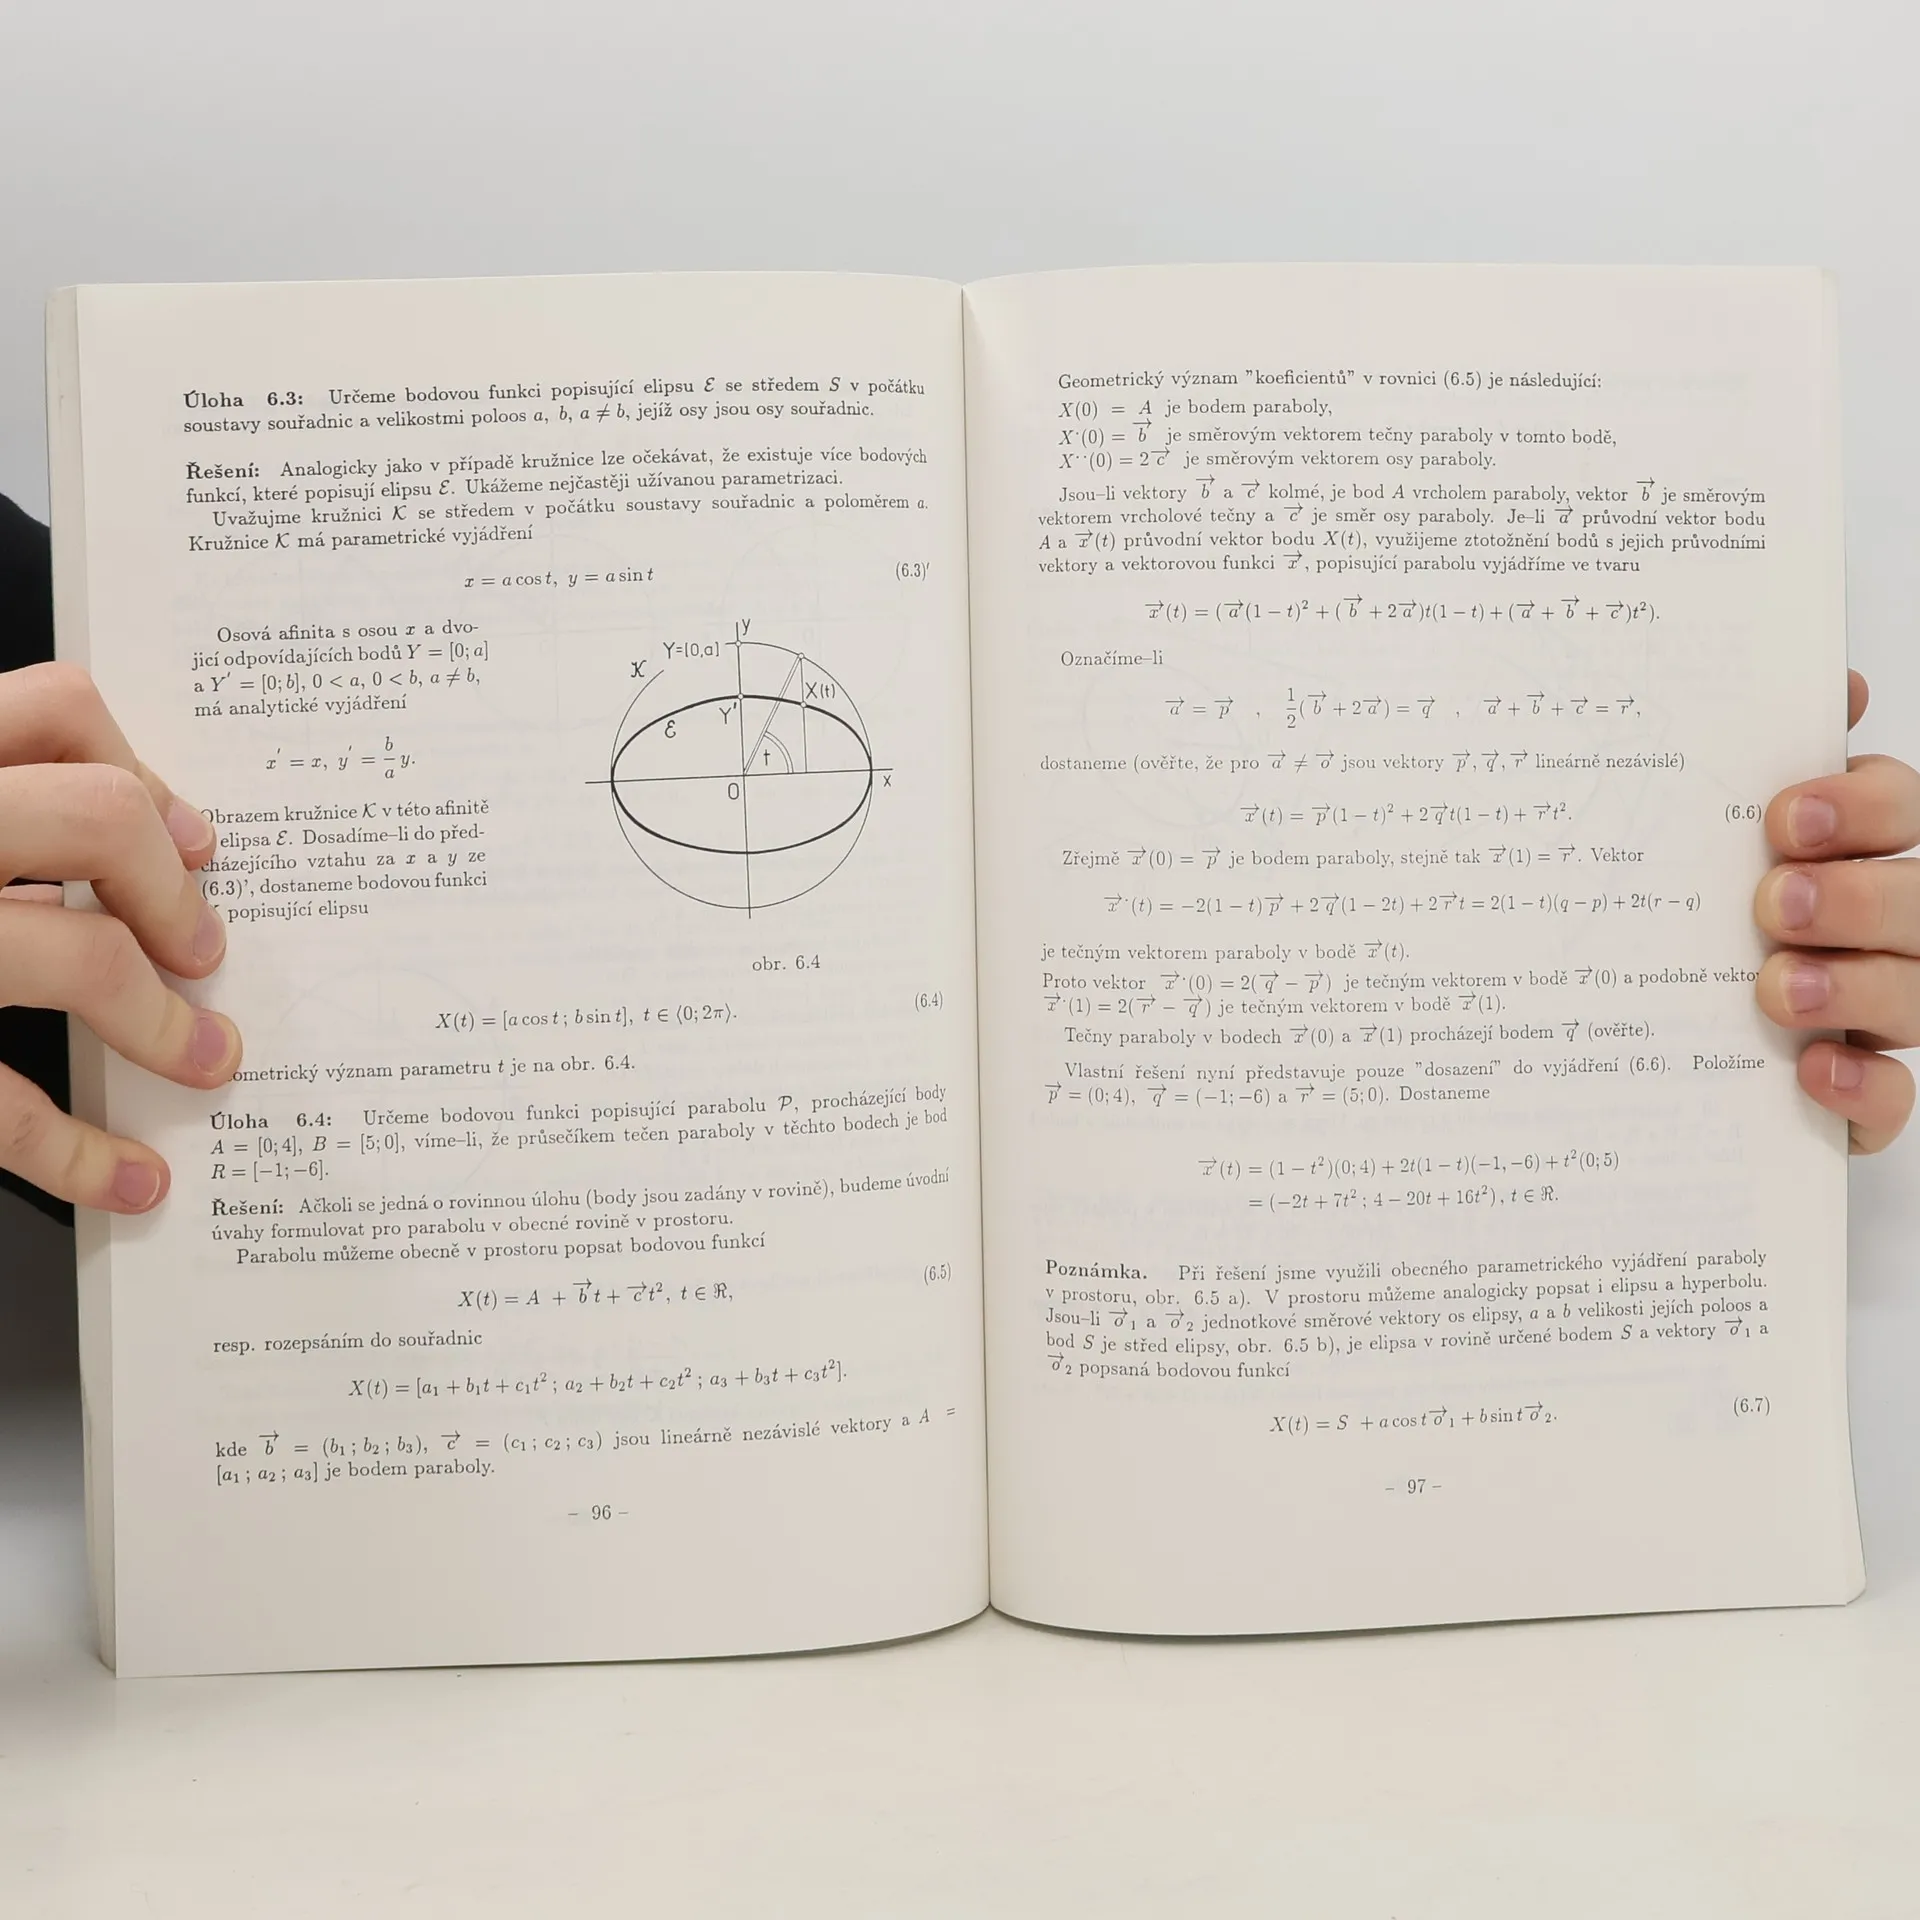 Úloha 6.3: Určeme bodovou funkci popisující elipsu ℰ se středem S v počátku
soustavy souřadnic a velikostmi poloos a, b, a ≠ b, jejíž osy jsou osy souřadnic.
Řešení: Analogicky jako v případě kružnice lze očekávat, že existuje více bodových
funkcí, které popisují elipsu ℰ. Ukážeme nejčastěji užívanou parametrizaci.
Uvažujme kružnici 𝒦 se středem v počátku soustavy souřadnic a poloměrem a.
Kružnice 𝒦 má parametrické vyjádření
x = a cos t, y = a sin t (6.3)'
Osová afinita s osou x a dvo-
jicí odpovídajících bodů Y = [0; a]
a Y' = [0; b], 0 < a, 0 < b, a ≠ b,
má analytické vyjádření
x' = x, y' = b/a y.
Obrazem kružnice 𝒦 v této afinitě
elipsa ℰ. Dosadíme–li do před-
cházejícího vztahu za x a y ze
(6.3)', dostaneme bodovou funkci
popisující elipsu
y
Y=[0,a]
𝒦
X(t)
Y'
ℰ
t
x
O
obr. 6.4
X(t) = [a cos t ; b sin t], t ∈ ⟨0; 2π⟩. (6.4)
ometrický význam parametru t je na obr. 6.4.
Úloha 6.4: Určeme bodovou funkci popisující parabolu 𝒫, procházející body
A = [0; 4], B = [5; 0], víme–li, že průsečíkem tečen paraboly v těchto bodech je bod
R = [−1; −6].
Řešení: Ačkoli se jedná o rovinnou úlohu (body jsou zadány v rovině), budeme úvodní
úvahy formulovat pro parabolu v obecné rovině v prostoru.
Parabolu můžeme obecně v prostoru popsat bodovou funkcí
X(t) = A + b⃗t + c⃗t², t ∈ ℜ, (6.5)
resp. rozepsáním do souřadnic
X(t) = [a₁ + b₁t + c₁t² ; a₂ + b₂t + c₂t² ; a₃ + b₃t + c₃t²].
kde b⃗ = (b₁ ; b₂ ; b₃), c⃗ = (c₁ ; c₂ ; c₃) jsou lineárně nezávislé vektory a A =
[a₁ ; a₂ ; a₃] je bodem paraboly.
– 96 –
Geometrický význam "koeficientů" v rovnici (6.5) je následující:
X(0) = A je bodem paraboly,
X˙(0) = b⃗ je směrovým vektorem tečny paraboly v tomto bodě,
X˙˙(0) = 2c⃗ je směrovým vektorem osy paraboly.
Jsou–li vektory b⃗ a c⃗ kolmé, je bod A vrcholem paraboly, vektor b⃗ je směrovým
vektorem vrcholové tečny a c⃗ je směr osy paraboly. Je–li a⃗ průvodní vektor bodu
A a x⃗(t) průvodní vektor bodu X(t), využijeme ztotožnění bodů s jejich průvodními
vektory a vektorovou funkci x⃗, popisující parabolu vyjádříme ve tvaru
x⃗(t) = (a⃗(1 − t)² + (b⃗ + 2a⃗)t(1 − t) + (a⃗ + b⃗ + c⃗)t²).
Označíme–li
a⃗ = p⃗ , 1/2(b⃗ + 2a⃗) = q⃗ , a⃗ + b⃗ + c⃗ = r⃗,
dostaneme (ověřte, že pro a⃗ ≠ o⃗ jsou vektory p⃗, q⃗, r⃗ lineárně nezávislé)
x⃗(t) = p⃗(1 − t)² + 2q⃗t(1 − t) + r⃗t². (6.6)
Zřejmě x⃗(0) = p⃗ je bodem paraboly, stejně tak x⃗(1) = r⃗. Vektor
x⃗˙(t) = −2(1 − t)p⃗ + 2q⃗(1 − 2t) + 2r⃗t = 2(1 − t)(q − p) + 2t(r − q)
je tečným vektorem paraboly v bodě x⃗(t).
Proto vektor x⃗˙(0) = 2(q⃗ − p⃗) je tečným vektorem v bodě x⃗(0) a podobně vekto
x⃗˙(1) = 2(r⃗ − q⃗) je tečným vektorem v bodě x⃗(1).
Tečny paraboly v bodech x⃗(0) a x⃗(1) procházejí bodem q⃗ (ověřte).
Vlastní řešení nyní představuje pouze "dosazení" do vyjádření (6.6). Položíme
p⃗ = (0; 4), q⃗ = (−1; −6) a r⃗ = (5; 0). Dostaneme
x⃗(t) = (1 − t²)(0; 4) + 2t(1 − t)(−1, −6) + t²(0; 5)
= (−2t + 7t² ; 4 − 20t + 16t²), t ∈ ℜ.
Poznámka. Při řešení jsme využili obecného parametrického vyjádření paraboly
v prostoru, obr. 6.5 a). V prostoru můžeme analogicky popsat i elipsu a hyperbolu.
Jsou–li o⃗₁ a o⃗₂ jednotkové směrové vektory os elipsy, a a b velikosti jejích poloos a
bod S je střed elipsy, obr. 6.5 b), je elipsa v rovině určené bodem S a vektory o⃗₁ a
o⃗₂ popsaná bodovou funkcí
X(t) = S + a cos t o⃗₁ + b sin t o⃗₂. (6.7)
– 97 –